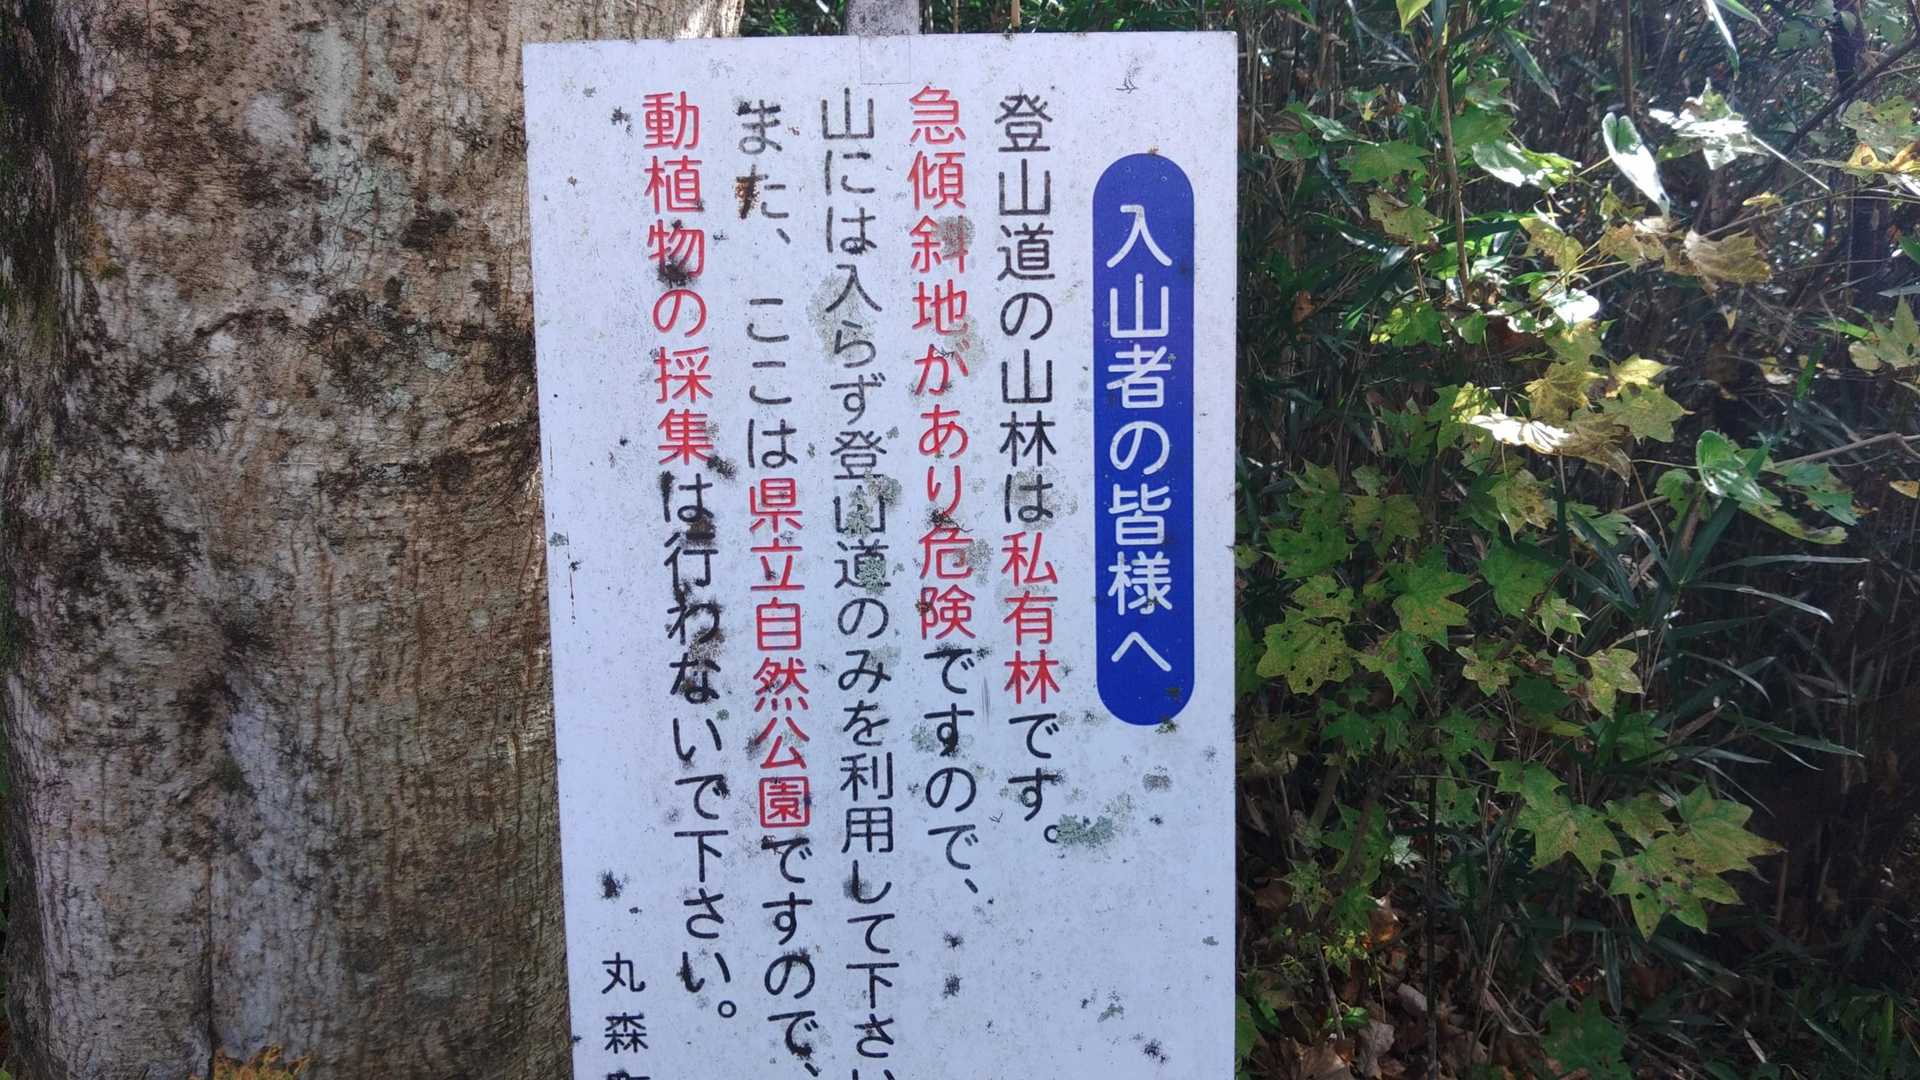 入山者の皆様へ
登山道の山林は私有林です。
急傾斜地があり危険ですので、
山には入らず登山道のみを利用して下さい
また、ここは県立自然公園ですので、
動植物の採集は行わないで下さい。
丸森町